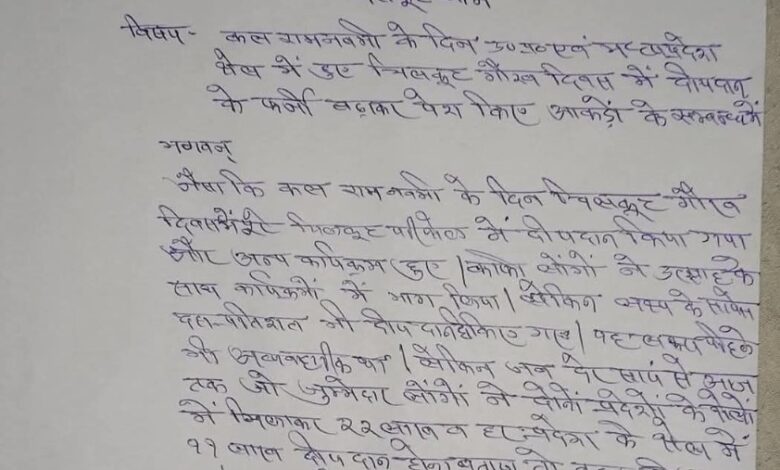 विषय- कल रामनवमी के दिन उ०प्र० एवं मध्यप्रदेश
क्षेत्र में हुए चित्रकूट गौरव दिवस में दीपदान
के फर्जी बढ़ाकर पेश किए आकड़ों के सम्बन्ध में
भगवन्
जैसा कि कल रामनवमी के दिन चित्रकूट गौरव
दिवस में चित्रकूट परिक्षेत्र में दीपदान किया गया
और अन्य कार्यक्रम हुए | काफी लोगों ने उत्साह के
साथ कार्यक्रमों में भाग लिया | लेकिन लक्ष्य के सापेक्ष
दस प्रतिशत भी दीपदान किए गए | यह लक्ष्य पहले
भी अव्यवहारिक था | लेकिन जब देर सायं से आज
तक जो जुम्मेदार लोगों ने दोनों प्रदेशों के क्षेत्रों
में मिलाकर २२ लाख व प्रदेश के क्षेत्र में
११ लाख दीपदान होना बताया